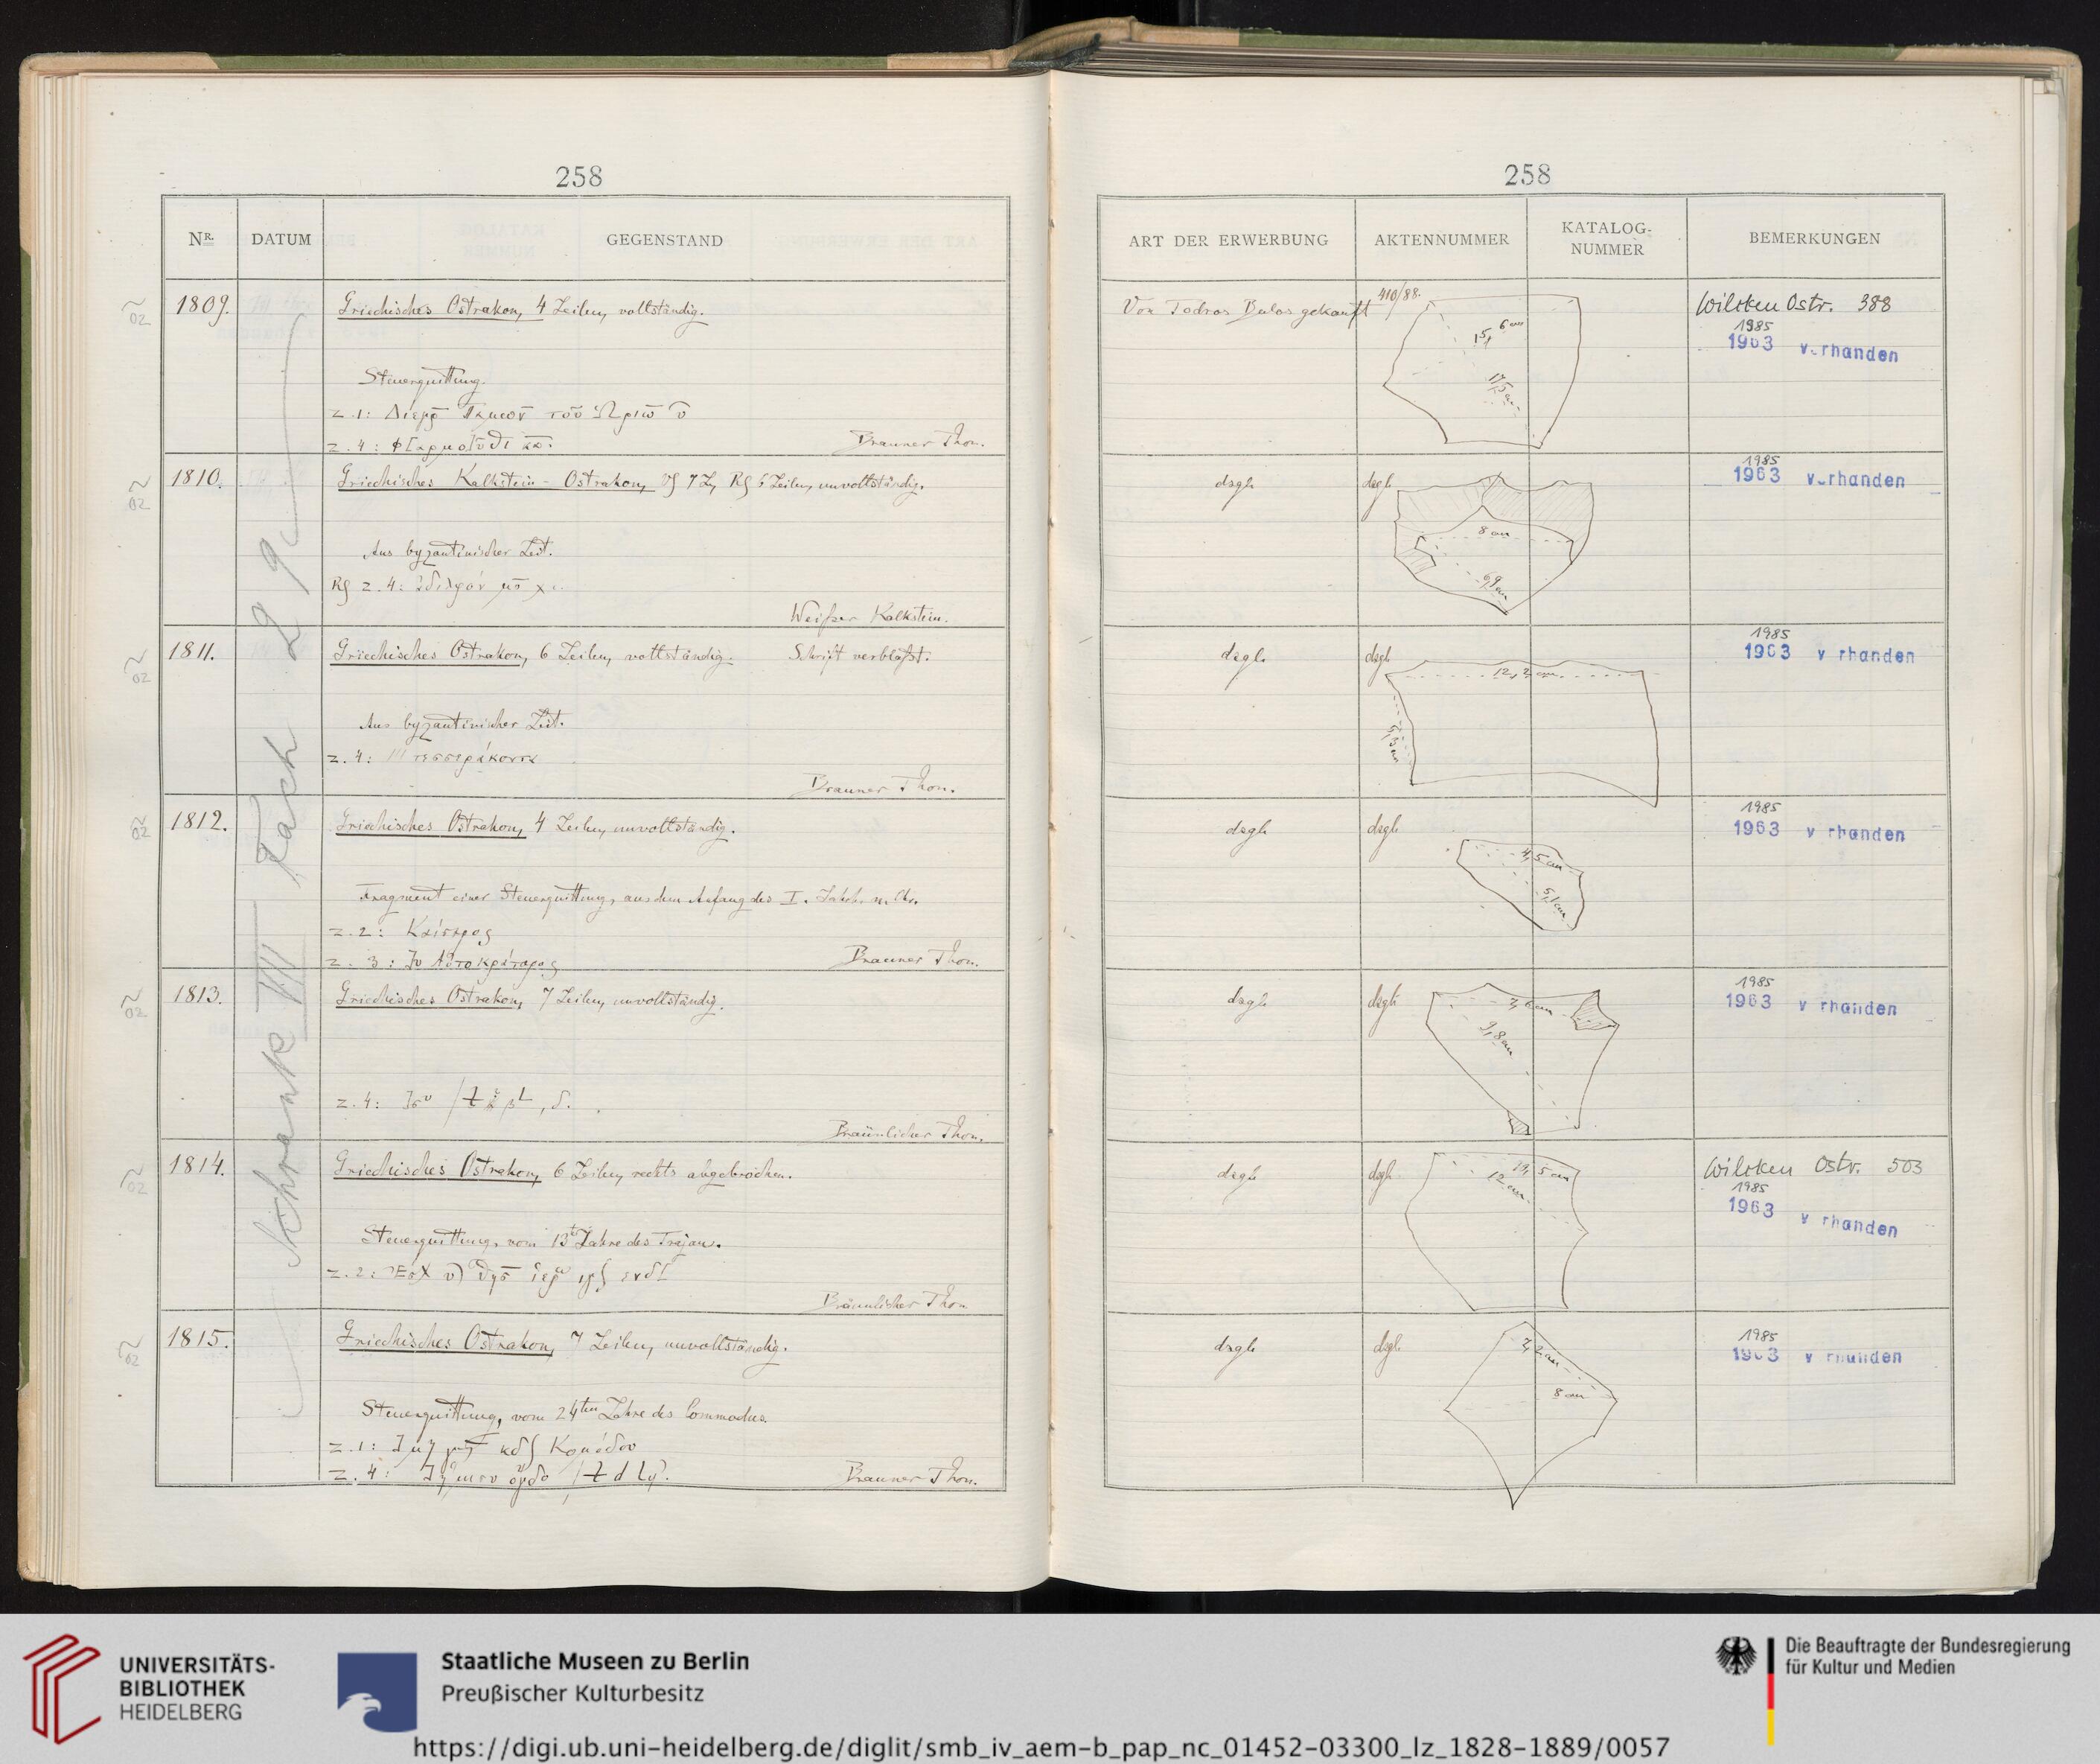 258
NR. DATUM GEGENSTAND
1809. Griechisches Ostrakon, 4 Zeilen, vollständig.
Steuerquittung.
Z. 1:
Z. 4:
Brauner Thon.
1810. Griechisches Kalkstein-Ostrakon, Vs 7 Z, Rs 6 Zeilen, unvollständig.
Aus byzantinischer Zeit.
Rs Z. 4:
Weißer Kalkstein.
1811. Griechisches Ostrakon, 6 Zeilen, vollständig. Schrift verblaßt.
Aus byzantinischer Zeit.
Z. 4: τεσσεράκοντα
Brauner Thon.
1812. Griechisches Ostrakon, 4 Zeilen, unvollständig.
Fragment einer Steuerquittung, aus dem Anfang des I. Jahrh. n. Chr.
Z. 2: Καίσαρος
Z. 3: Αὐτοκράτορος
Brauner Thon.
1813. Griechisches Ostrakon, 7 Zeilen, unvollständig.
Z. 4:
Bräunlicher Thon.
1814. Griechisches Ostrakon, 6 Zeilen, rechts abgebrochen.
Steuerquittung, vom 13ten Jahre des Trajan.
Z. 2:
Bräunlicher Thon
1815. Griechisches Ostrakon, 7 Zeilen, unvollständig.
Steuerquittung, vom 24ten Jahre des Commodus.
Z. 1: Κομόδου
Z. 4:
Brauner Thon.
Schrank VIII Fach 2
258
ART DER ERWERBUNG AKTENNUMMER KATALOG-NUMMER BEMERKUNGEN
Von Todros Bulos gekauft 410/88. Wilcken Ostr. 388
6 cm
1985
1963 vorhanden
dsgl. dsgl. 1985
1963 vorhanden
8 cm
6,9 cm
dsgl. dsgl. 1985
1963 vorhanden
12,2 cm
dsgl. dsgl. 1985
1963 vorhanden
4,5 cm
5,1 cm
dsgl. dsgl. 1985
1963 vorhanden
7,6 cm
9,8 cm
dsgl. dsgl. Wilcken Ostr. 503
12 cm
1985
1963 vorhanden
dsgl. dsgl. 1985
1963 vorhanden
7,2 cm
8 cm
UNIVERSITÄTS-
BIBLIOTHEK
HEIDELBERG
Staatliche Museen zu Berlin
Preußischer Kulturbesitz
Die Beauftragte der Bundesregierung
für Kultur und Medien
https://digi.ub.uni-heidelberg.de/diglit/smb_iv_aem-b_pap_nc_01452-03300_lz_1828-1889/0057